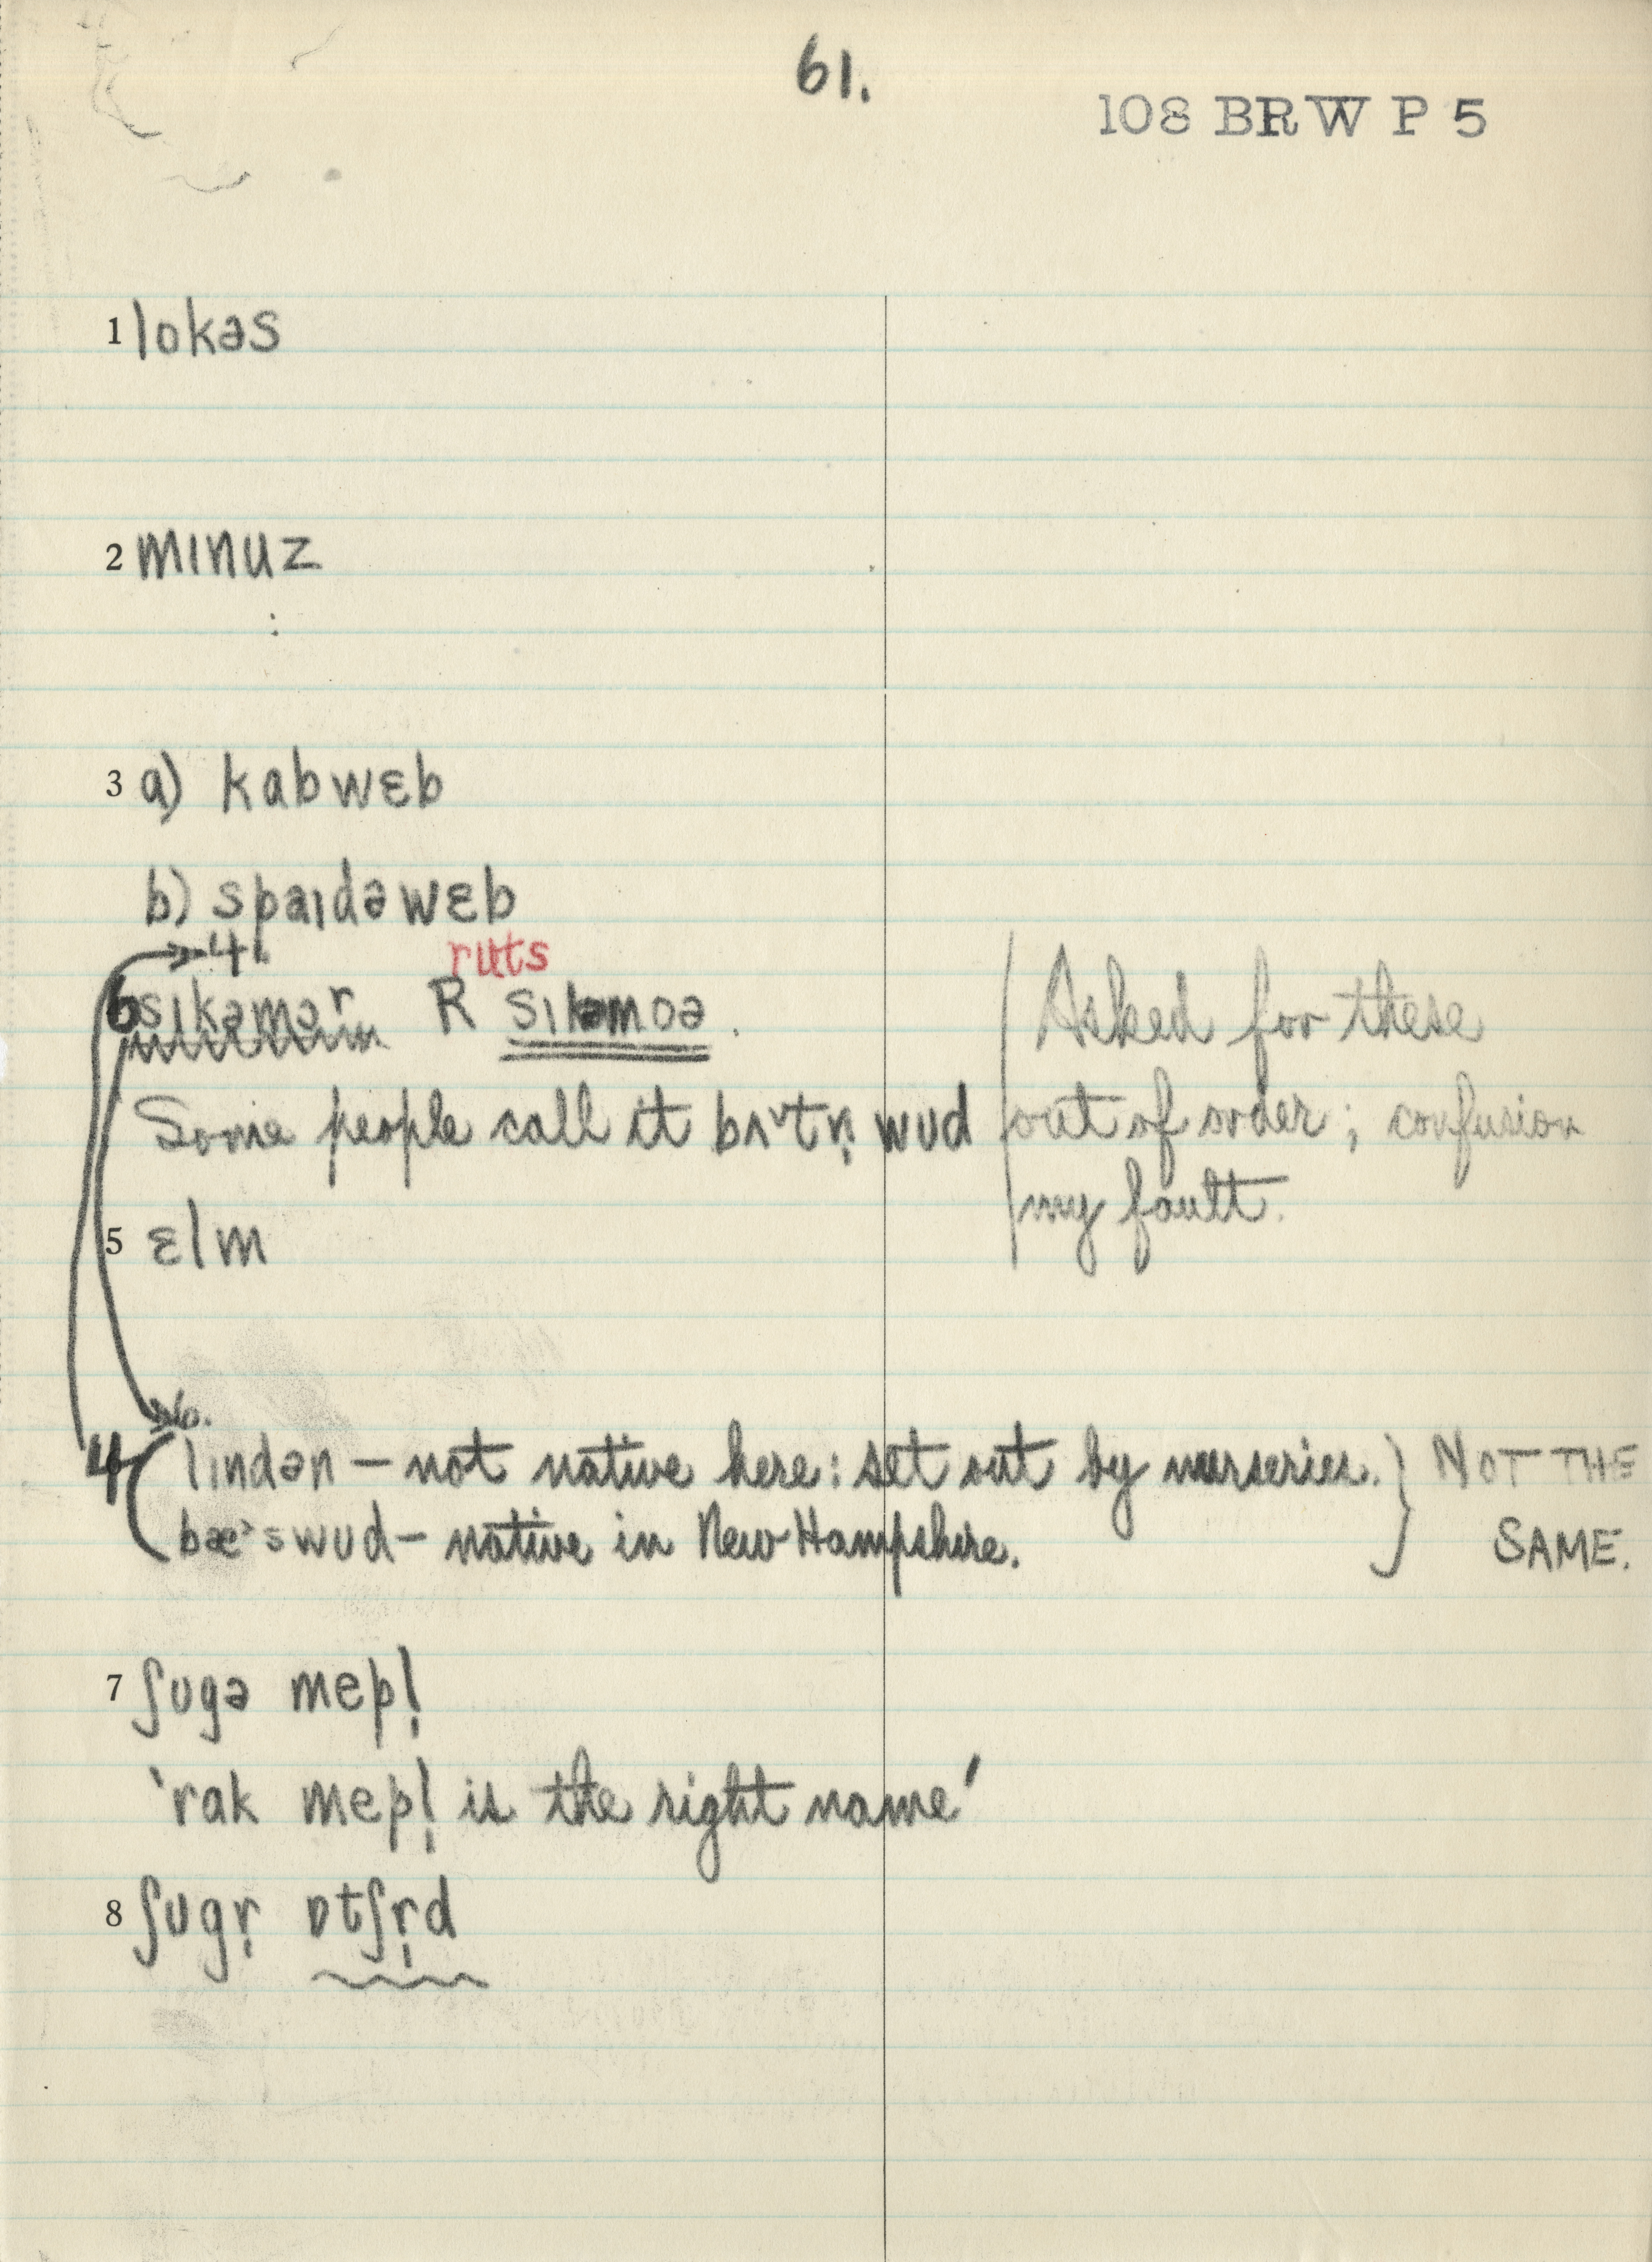 61.
108 BRW P 5
1 lokəs
2 mɪnuz
3 a) kabwɛb
b) spaɪdəwɛb
4.
ruts
6 sɪkəmər R sɪkəmoə.
Some people call it bʌ˅tn̩ wud
Asked for these
out of order; confusion
my fault.
5 ɛlm
6.
4 (lɪndən – not native here: set out by nurseries.
bæ˃swud – native in New Hampshire.
} NOT THE
SAME.
7 ʃʊgə mepl̩
'rak mepl̩ is the right name'
8 ʃʊgr̩ ɒtʃr̩d